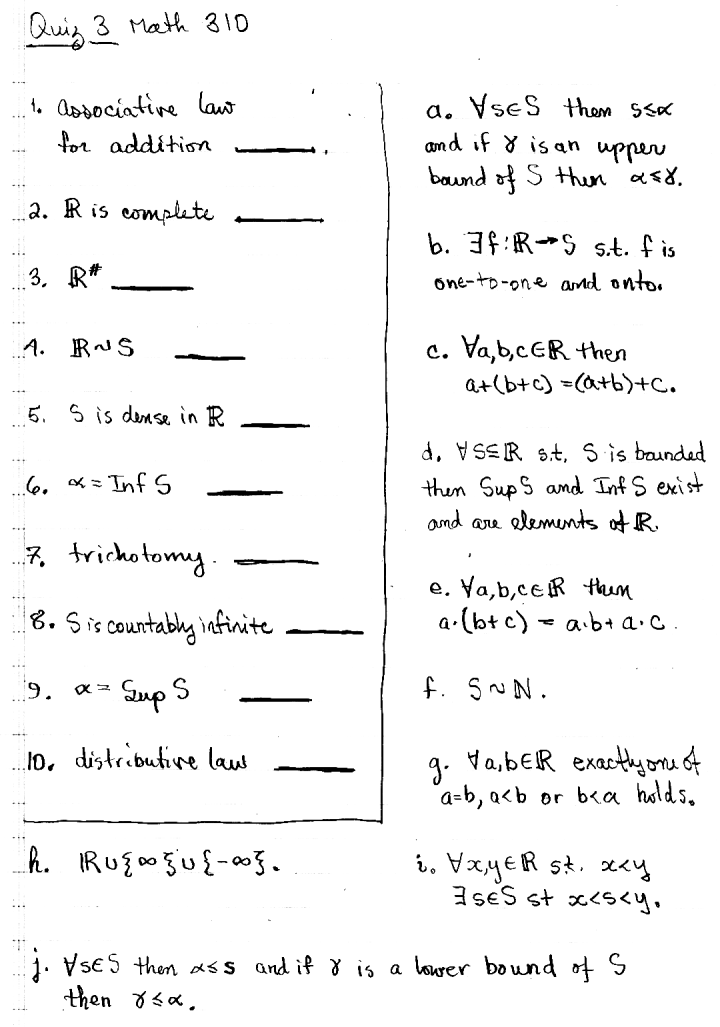 Quiz 3 Math 310
1. associative law
for addition ______.
2. ℝ is complete ______
3. ℝ# ______
4. ℝ~S ______
5. S is dense in ℝ ______
6. α = Inf S ______
7. trichotomy. ______
8. S is countably infinite ______
9. α = Sup S ______
10. distributive law ______
a. ∀s∈S then s≤α
and if γ is an upper
bound of S then α≤γ.
b. ∃f:ℝ→S s.t. f is
one-to-one and onto.
c. ∀a,b,c∈ℝ then
a+(b+c) =(a+b)+c.
d. ∀S⊆ℝ s.t. S is bounded
then Sup S and Inf S exist
and are elements of ℝ.
e. ∀a,b,c∈ℝ then
a·(b+c) = a·b+a·c.
f. S~ℕ.
g. ∀a,b∈ℝ exactly one of
a=b, a<b or b<a holds.
h. ℝ∪{∞}∪{-∞}.
i. ∀x,y∈ℝ st. x<y
∃s∈S st x<s<y.
j. ∀s∈S then α≤s and if γ is a lower bound of S
then γ≤α.